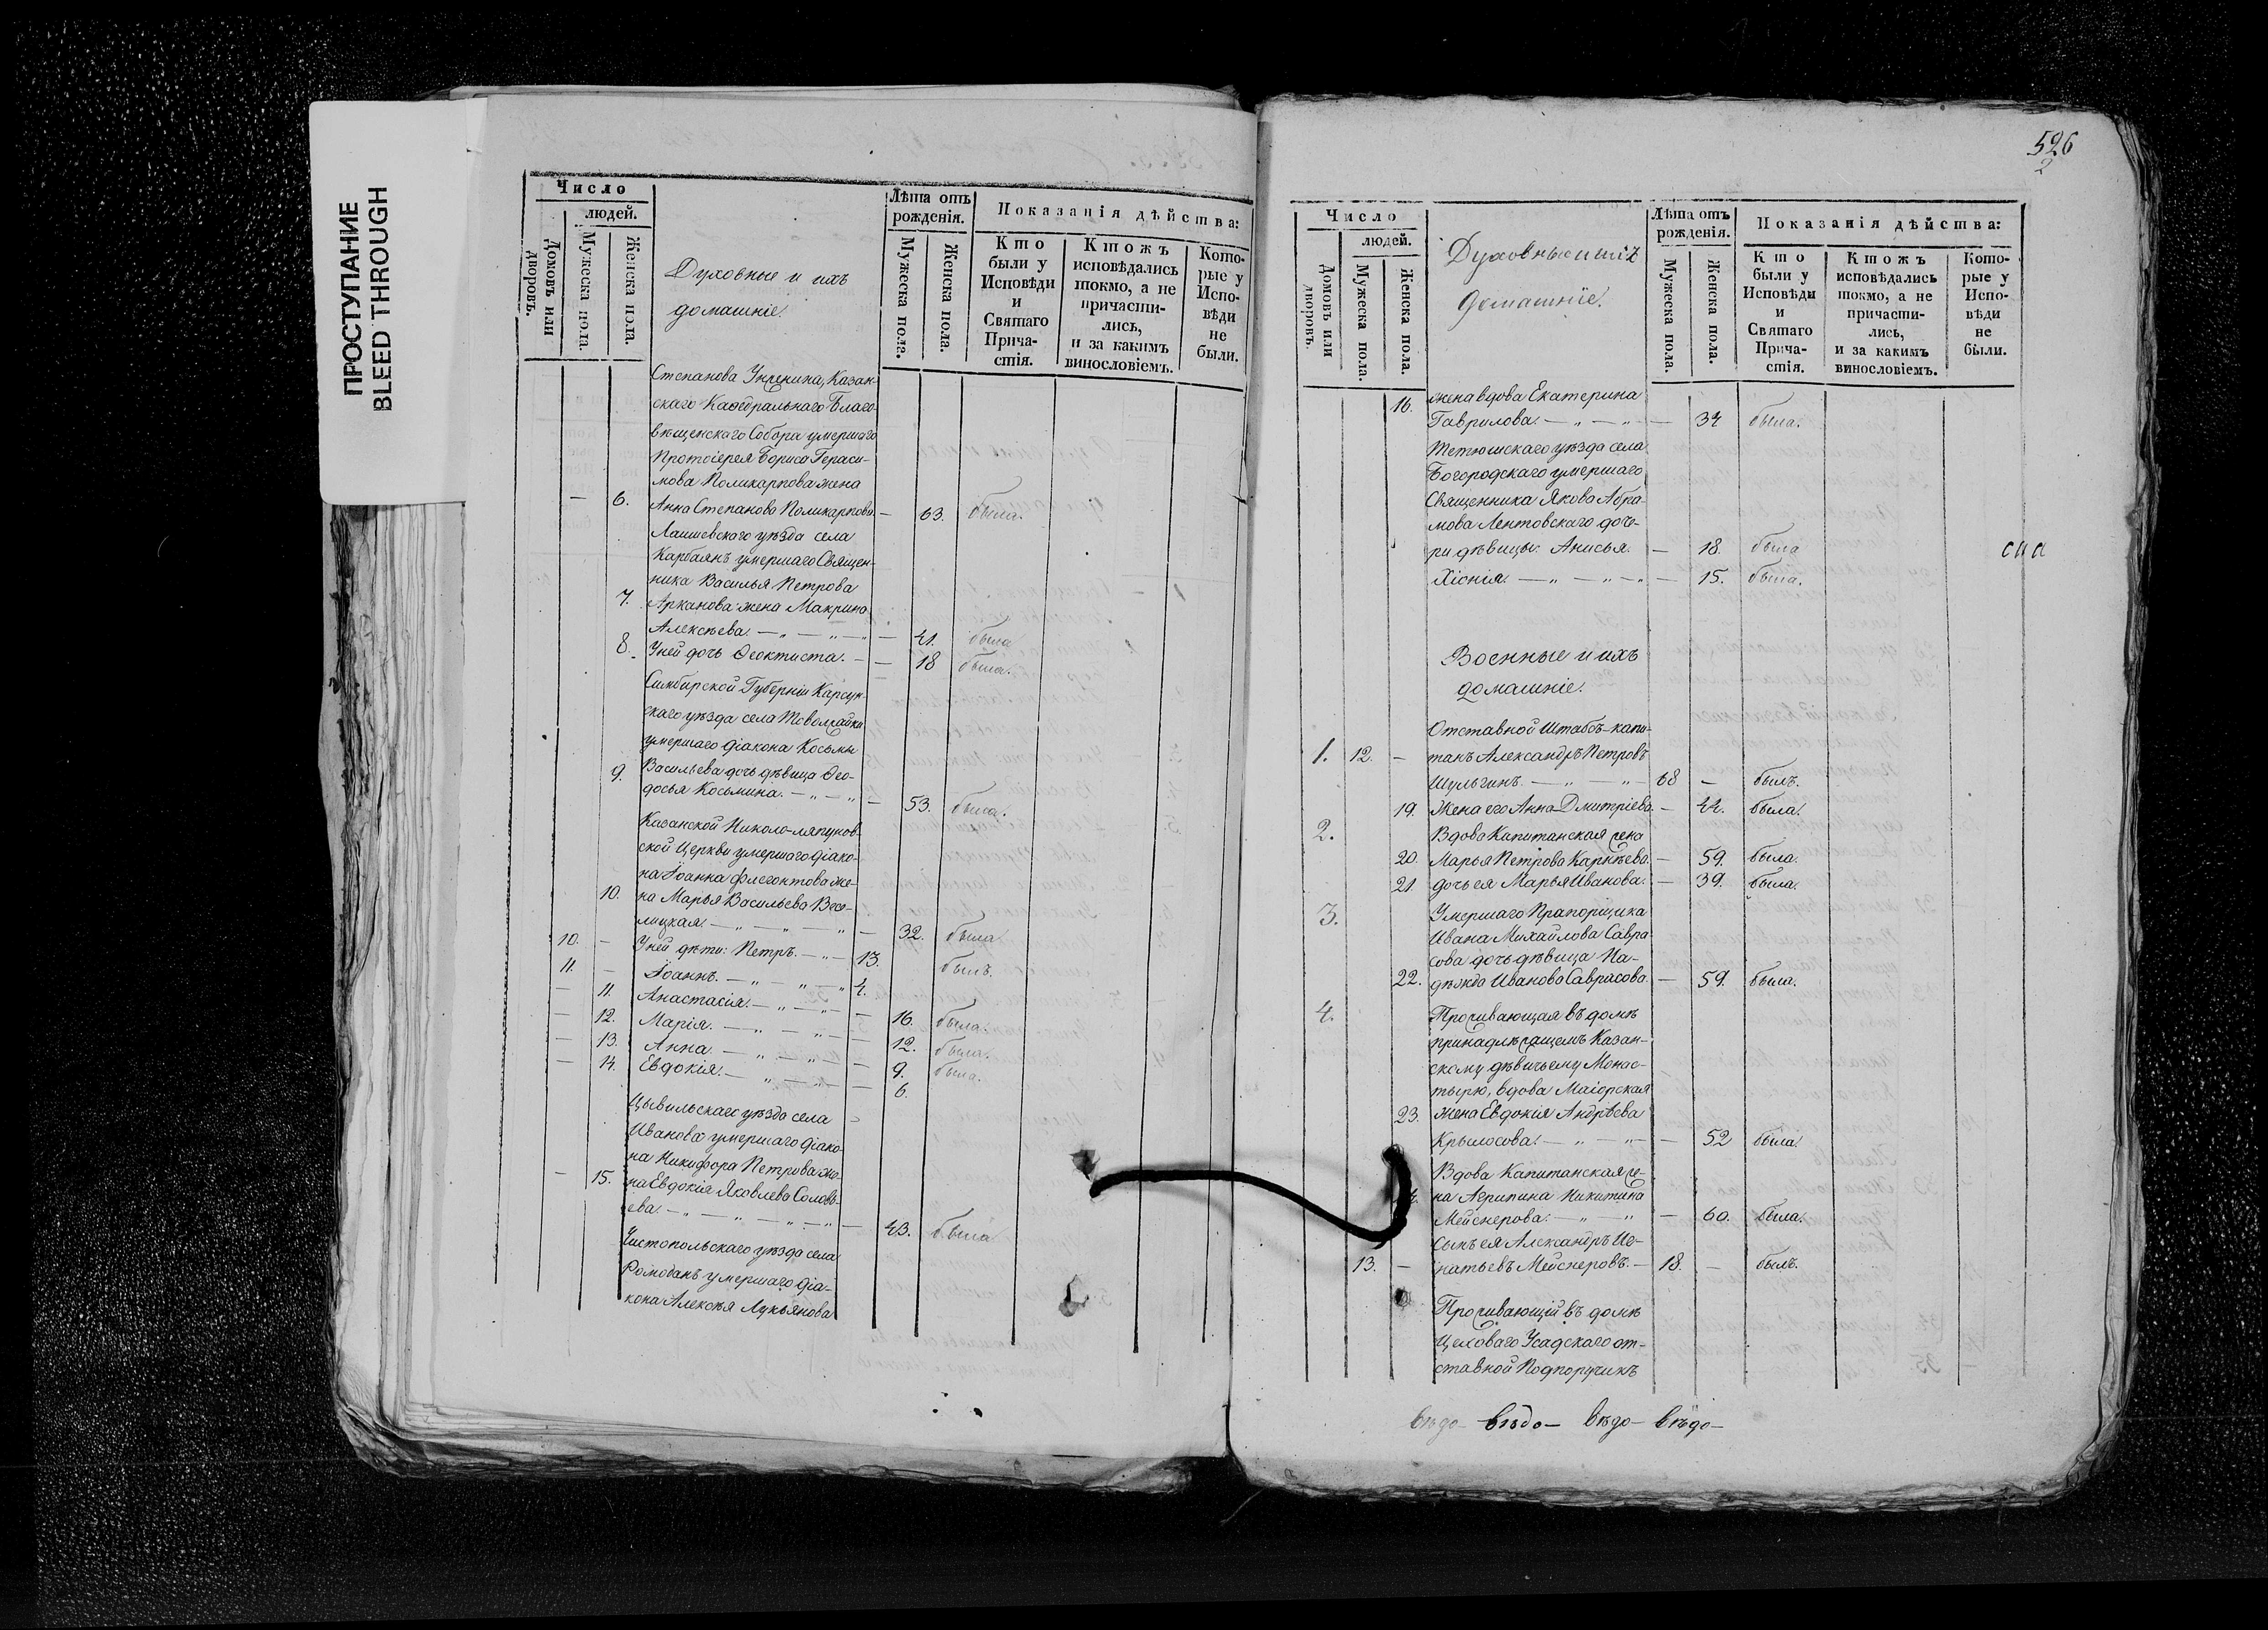 ПРОСТУПАНИЕ
BLEED THROUGH
Число
людей.
Домовъ или дворовъ.
Мужеска пола.
Женска пола.
Духовные и ихъ
домашніе.
Лѣта отъ
рожденія.
Мужеска пола.
Женска пола.
Показанія дѣйства:
Кто
были у
Исповѣди
и
Святаго
Прича-
стія.
Ктожъ
исповѣдались
токмо, а не
причасти-
лись,
и за какимъ
винословіемъ.
Кото-
рые у
Испо-
вѣди
не
были.
Степанова Казан-
скаго Каѳедральнаго Благо-
вѣщенскаго Собора умершаго
Протоіерея Бориса Гераси-
мова Поликарпова жена
— 6. Анна Степанова Поликарпова — 63. была.
Лаишевскаго уѣзда села
Карбаянъ умершаго Священ-
ника Василья Петрова
7. Арканова жена Макрина
Алексѣева. — „ — „ — „ — 41. была
8. У ней дочь Ѳеоктиста. — — 18 была.
Симбирской Губерніи Карсун-
скаго уѣзда села
умершаго діакона Косьмы
9. Васильева дочь дѣвица Ѳео-
досья Косьмина. — „ — „ — 53. была.
Казанской Николо-ляпунов-
ской Церкви умершаго діако-
на Іоанна Флегонтова же-
10. на Марья Васильева Весе-
лицкая. — „ — „ — „ — 32. была
10. — У ней дѣти: Петръ. — „ — 13. былъ.
11. — Іоаннъ. — „ — „ — „ 4.
— 11. Анастасія. — „ — „ — 16. была.
— 12. Марія. — „ — „ — 12. была.
— 13. Анна. — „ — „ — 9. была.
— 14. Евдокія. — „ — „ — 6.
Цывильскаго уѣзда села
Иванова умершаго діако-
на Никифора Петрова же-
— 15. на Евдокія Яковлева Соловь-
ева. — „ — „ — „ — „ — 43. была
Чистопольскаго уѣзда села
Ромоданъ умершаго діа-
кона Алексѣя Лукьянова
526
2
Число
людей.
Домовъ или дворовъ.
Мужеска пола.
Женска пола.
Духовные и ихъ
домашніе.
Лѣта отъ
рожденія.
Мужеска пола.
Женска пола.
Показанія дѣйства:
Кто
были у
Исповѣди
и
Святаго
Прича-
стія.
Ктожъ
исповѣдались
токмо, а не
причасти-
лись,
и за какимъ
винословіемъ.
Кото-
рые у
Испо-
вѣди
не
были.
16. жена вдова Екатерина
Гаврилова. — „ — „ — 34 была.
Тетюшскаго уѣзда села
Богородскаго умершаго
Священника Якова Абра-
мова Лентовскаго доче-
ри дѣвицы: Анисья. — 18. была
Хіонія. — „ — „ — „ — 15. была.
Военные и ихъ
домашніе.
Отставной Штабсъ-капи-
1. 12. — танъ Александръ Петровъ
Шульгинъ. — „ — „ 68 — былъ.
19. Жена его Анна Дмитріева. — 44. была.
2. Вдова Капитанская жена
20. Марья Петрова Карнѣева. — 59. была.
21 дочь ея Марья Иванова. — 39. была.
3. Умершаго Прапорщика
Ивана Михайлова Савра-
сова дочь дѣвица На-
22. дѣжда Иванова Саврасова. — 59. была.
4. Проживающая въ домѣ
принадлежащемъ Казан-
скому дѣвичьему Монас-
тырю, вдова Маіорская
23. жена Евдокія Андрѣева
Крылосова. — „ — „ — 52 была.
Вдова Капитанская же-
на Агрипина Никитина
Мейснерова. — „ — „ — 60. была.
Сынъ ея Александръ Иг-
13. — натьевъ Мейснеровъ. — 18. — былъ.
Проживающій въ домѣ
Цеховаго Усадскаго от-
ставной Подпоручикъ
вѣдо- вѣдо- вѣдо- вѣдо-